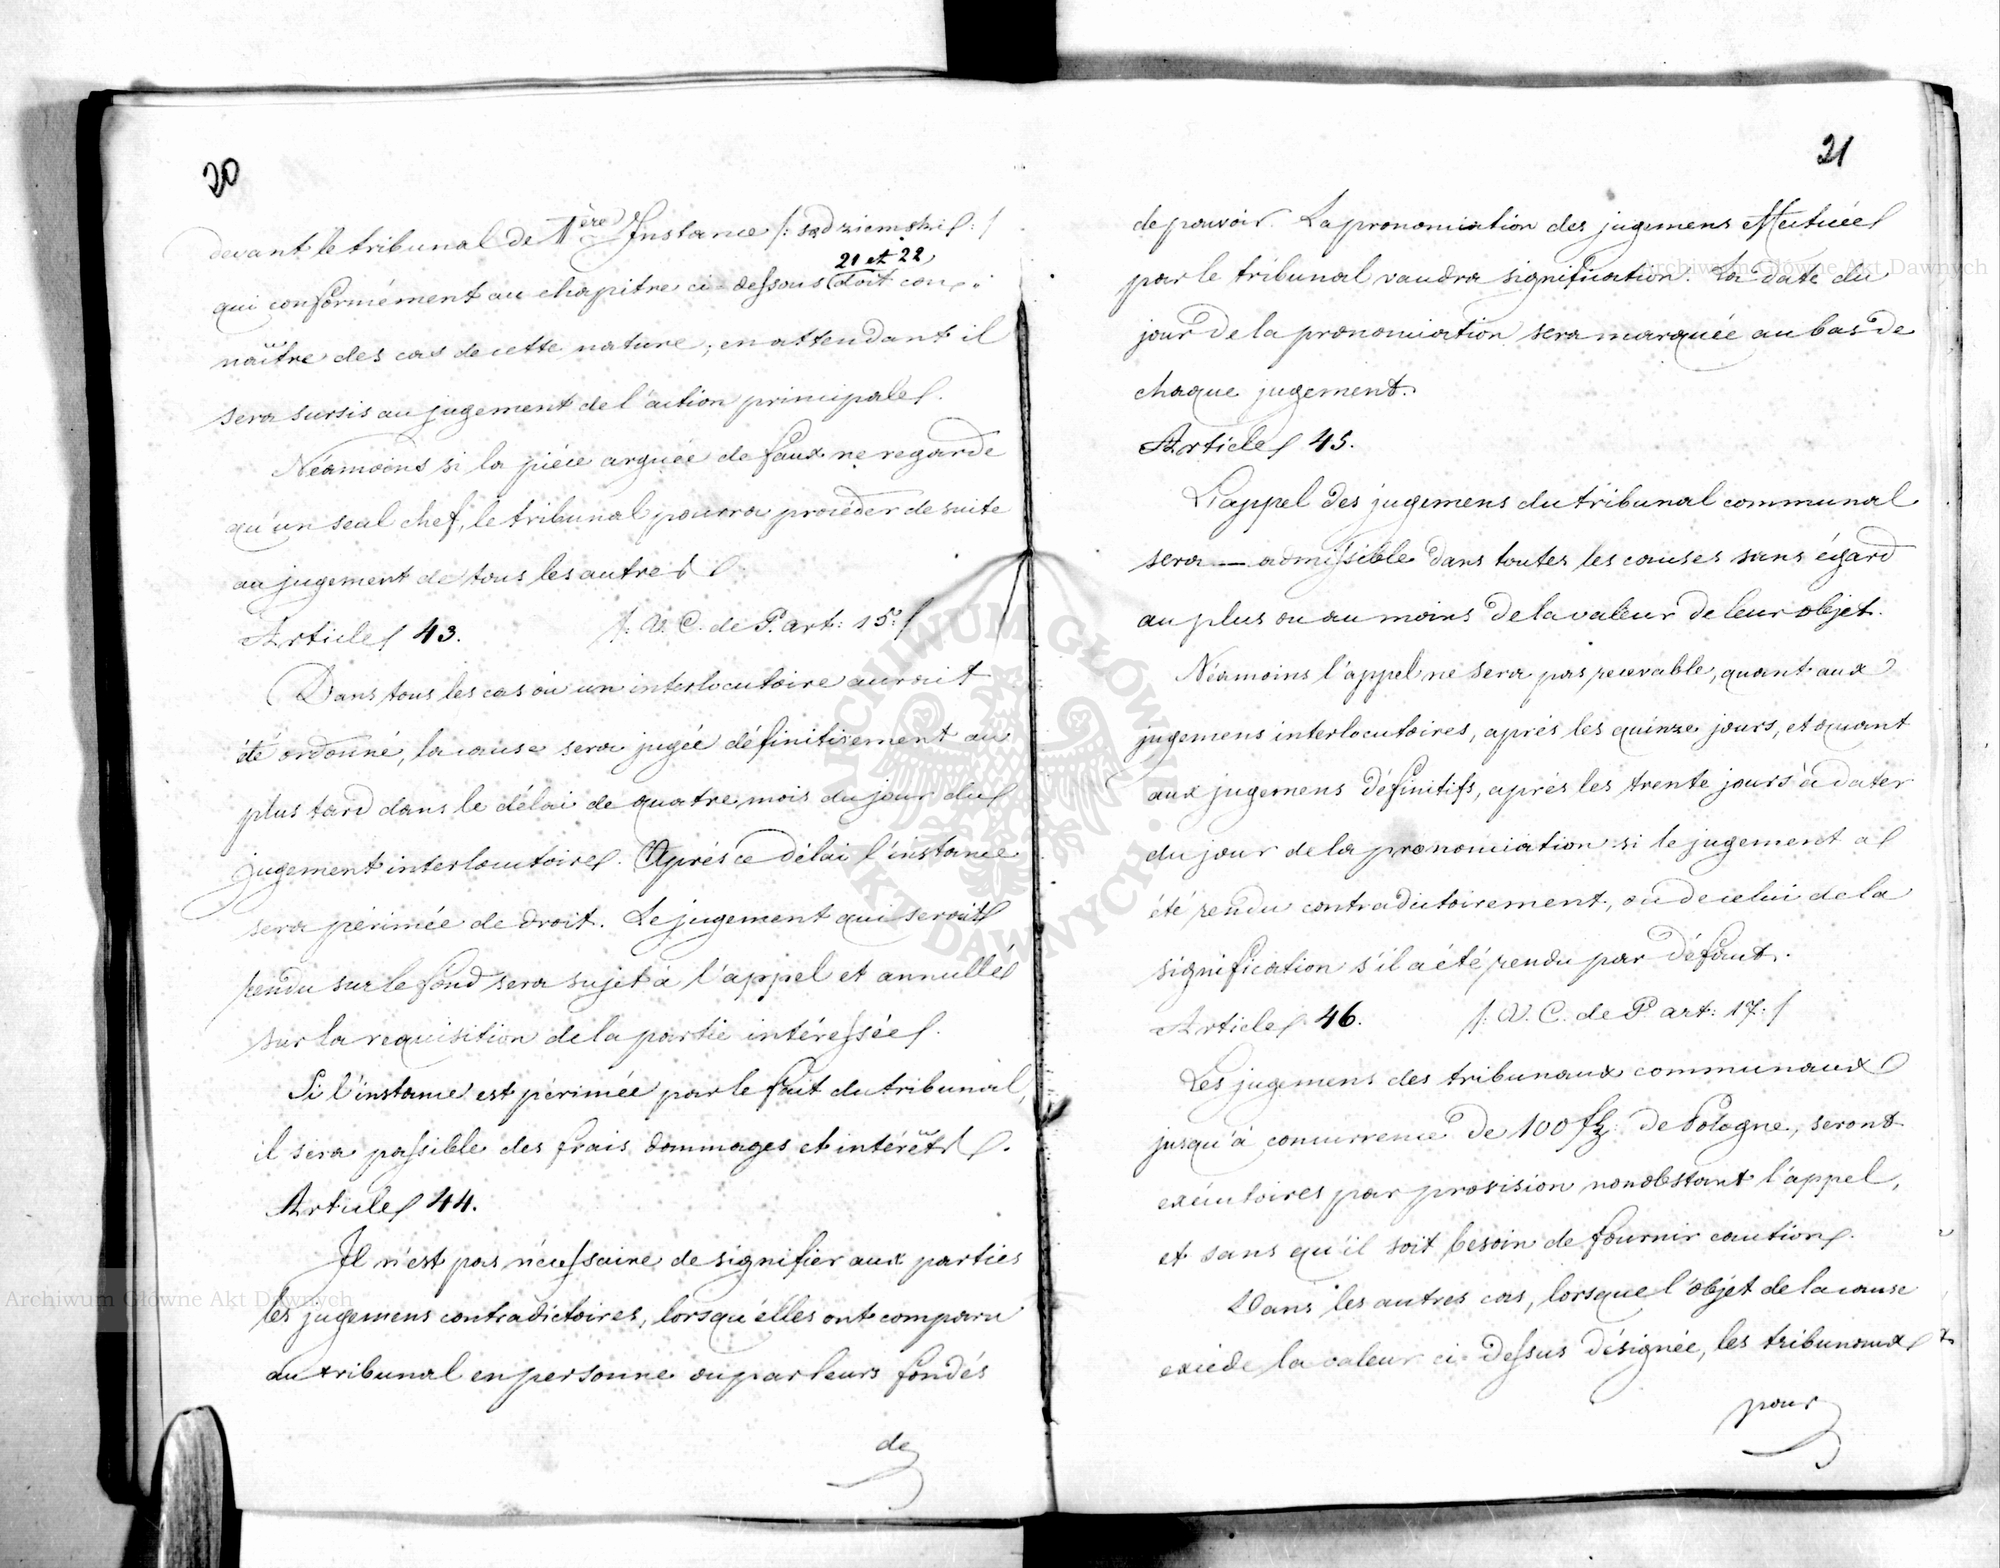 20
devant le tribunal de 1ère Instance /: sąd ziemski :/
21 et 22
qui conformément au chapitre ci-dessous doit con-
naître des cas de cette nature; en attendant il
sera sursis au jugement de l'action principale.
Néamoins si la pièce arguée de faux ne regarde
qu'un seul chef, le tribunal pourra procéder de suite
au jugement de tous les autres.
Article 43. /: V. C. de P. art: 15 :/
Dans tous les cas où un interlocutoire auroit
été ordonné, la cause sera jugée définitivement au
plus tard dans le délai de quatre mois du jour du
jugement interlocutoire. Après ce délai l'instance
sera périmée de droit. Le jugement qui seroit
rendu sur le fond sera sujet à l'appel et annullé
sur la requisition de la partie intéressée.
Si l'instance est perimée par le fait du tribunal,
il sera passible des frais dommages et intérêts.
Article 44.
Il n'est pas nécessaire de signifier aux parties
les jugemens contradictoires, lorsqu'elles ont comparu
au tribunal en personne ou par leurs fondés
de
21
de pouvoir. La prononciation des jugemens
par le tribunal vaudra signification. La date du
jour de la prononciation sera marquée au bas de
chaque jugement.
Article 45.
L'appel des jugemens du tribunal communal
sera — admissible dans toutes les causes sans égard
au plus ou au moins de la valeur de leur objet.
Néamoins l'appel ne sera pas recevable, quant aux
jugemens interlocutoires, après les quinze jours, et quant
aux jugemens définitifs, après les trente jours à dater
du jour de la prononciation si le jugement a
été rendu contradictoirement, ou de celui de la
signification s'il a été rendu par défaut.
Article 46. /: V. C. de P. art: 17 :/
Les jugemens des tribunaux communaux
jusqu'à concurrence de 100 fl: de Pologne, seront
exécutoires par provision nonobstant l'appel,
et sans qu'il soit besoin de fournir caution.
Dans les autres cas, lorsque l'objet de la cause
excède la valeur ci-dessus désignée, les tribunaux
pour
Archiwum Główne Akt Dawnych
Archiwum Główne Akt Dawnych
ARCHIWUM GŁÓWNE · AKT DAWNYCH ·